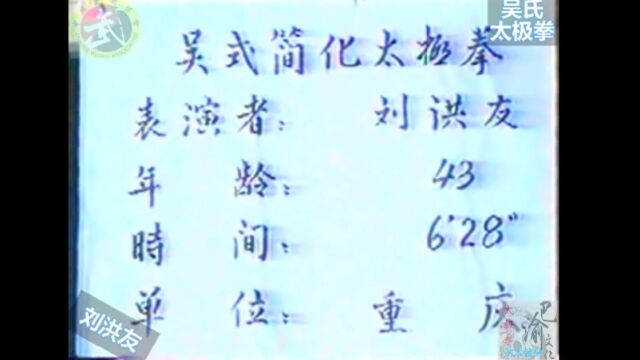 吴氏
太极拳
吴式简化太極拳
表演者: 刘洪友
年 龄: 43
時 间: 6'28"
单 位: 重 庆
刘洪友